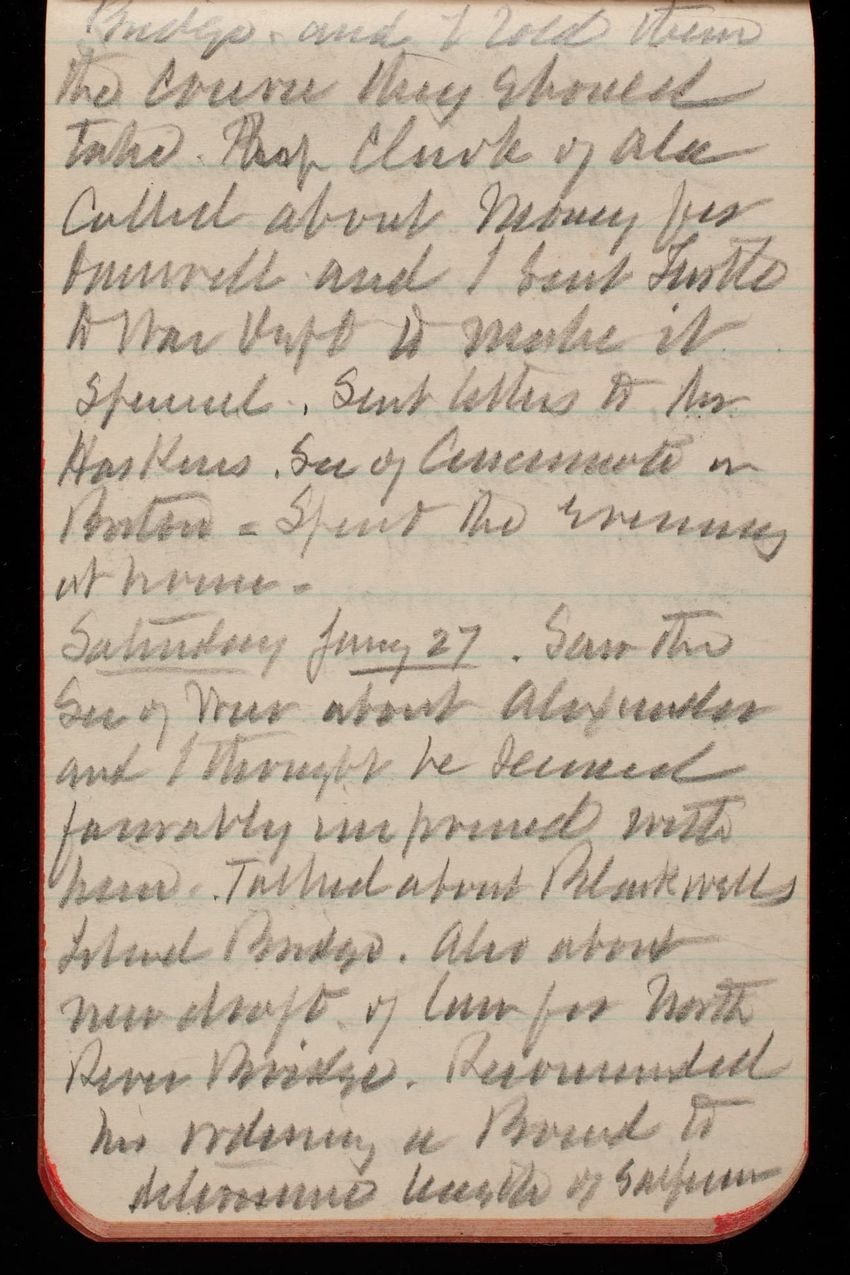 Bridge. and I told them
the course they should
take. Rep Clark of Ala
Called about Money for
and I sent Tuttle
to War Dept to make it
Special. Sent letters to Mr
Haskins. Sec of Cincinnati in
Boston - Spent the Evening
at home -
Saturday Jany 27. Saw the
Sec of War about Alexander
and I thought he seemed
favorably impressed with
him. Talked about Blackwells
Island Bridge. Also about
new draft of law for North
River Bridge. Recomended
his ordering a Board to
determine length of Span